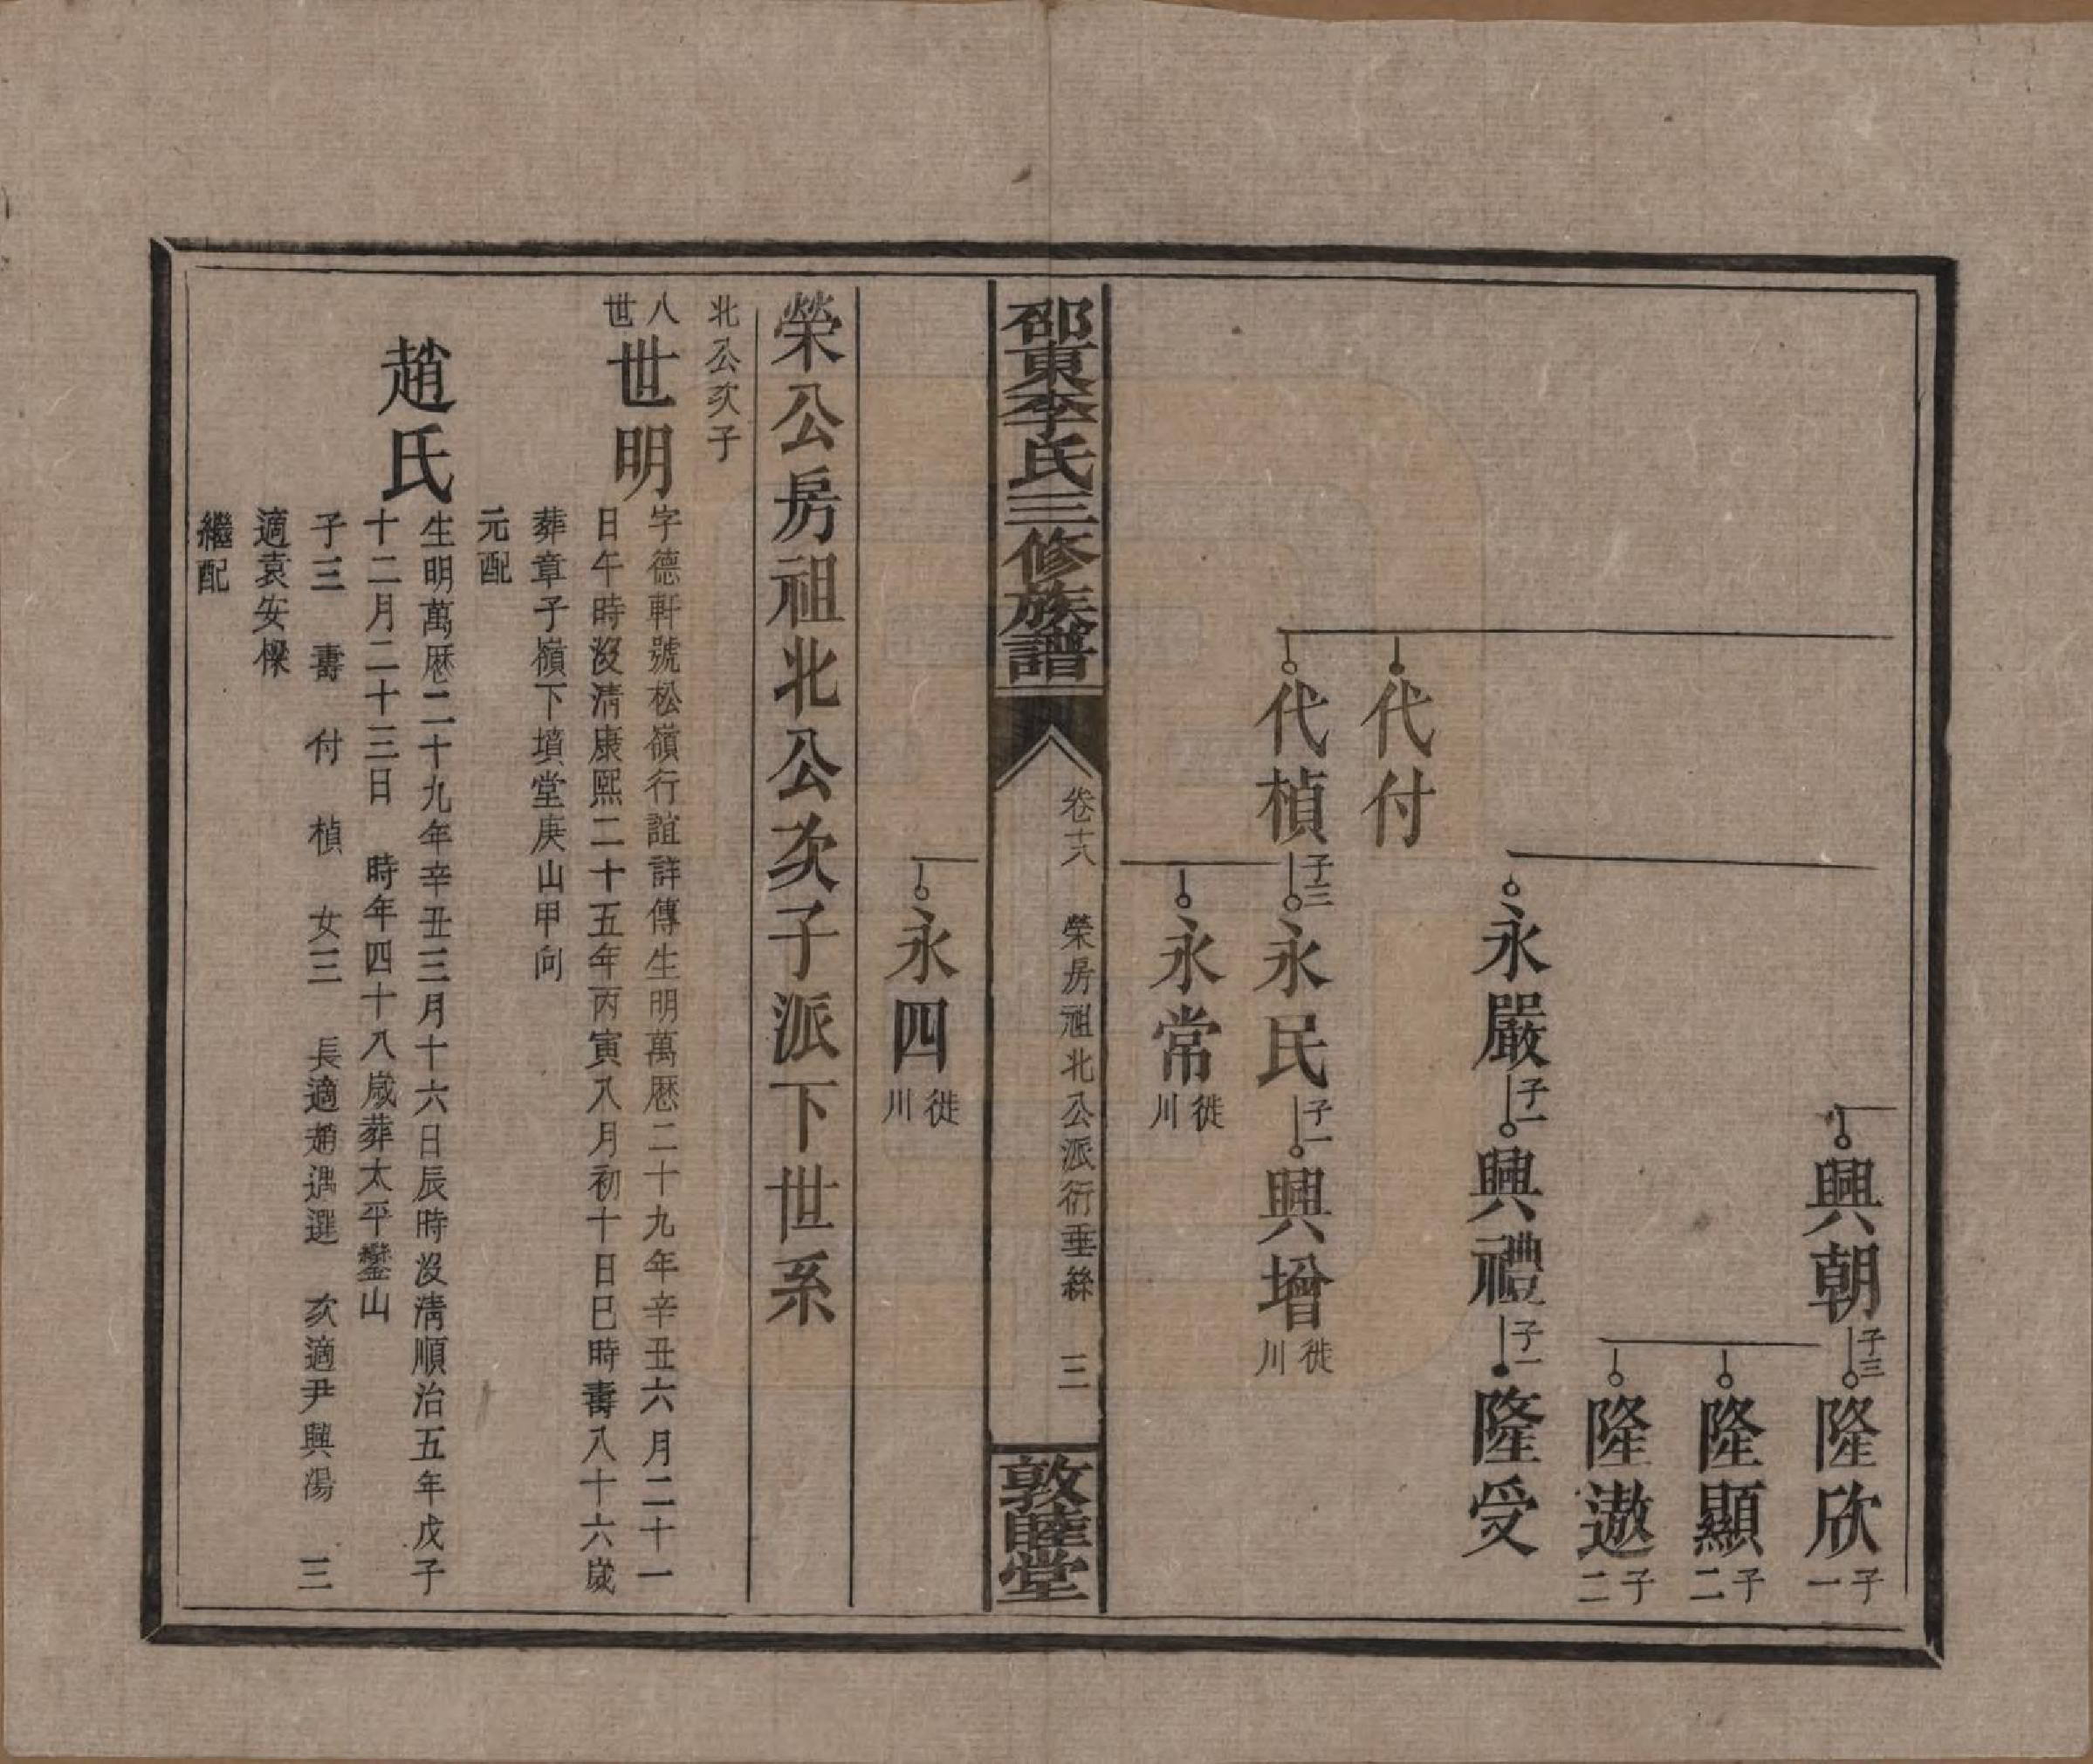 興朝
子三
隆欣
子一
隆顯
子二
隆遨
子二
永嚴
子一
興禮
子一
隆受
代付
代楨
子三
永民
子一
興增
徙川
永常
徙川
邵東李氏三修族譜
卷十八
榮房祖北公派衍垂絲
三
敦睦堂
永四
徙川
榮公房祖北公次子派下世系
北公次子
八世
世明
字德軒號松嶺行誼詳傳生明萬歷二十九年辛丑六月二十一
日午時沒清康熙二十五年丙寅八月初十日巳時壽八十六歲
葬章子嶺下墳堂庚山甲向
元配
趙氏
生明萬歷二十九年辛丑三月十六日辰時沒清順治五年戊子
十二月二十三日 時年四十八歲葬太平鑾山
子三 壽 付 楨 女三 長適趙遇選 次適尹興湯 三
適袁安櫟
繼配